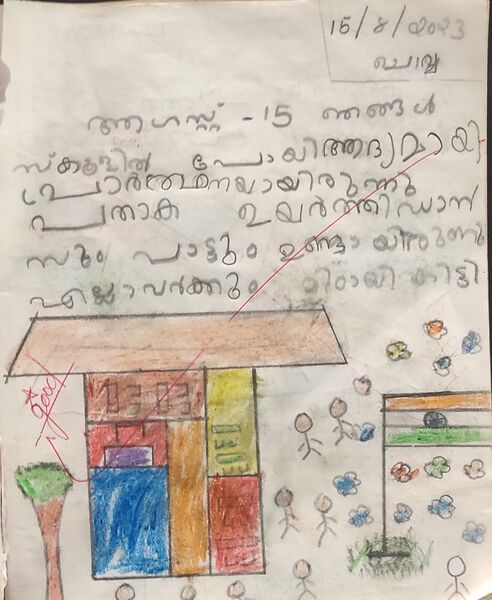 15/8/2023
ചൊവ്വ
ആഗസ്റ്റ് - 15 ഞങ്ങൾ
സ്കൂളിൽ പോയി ആദ്യമായി
പ്രാർത്ഥനയായിരുന്നു
പതാക ഉയർത്തി ഡാൻ
സും പാട്ടും ഉണ്ടായിരുന്നു
എല്ലാവർക്കും മിഠായി കിട്ടി